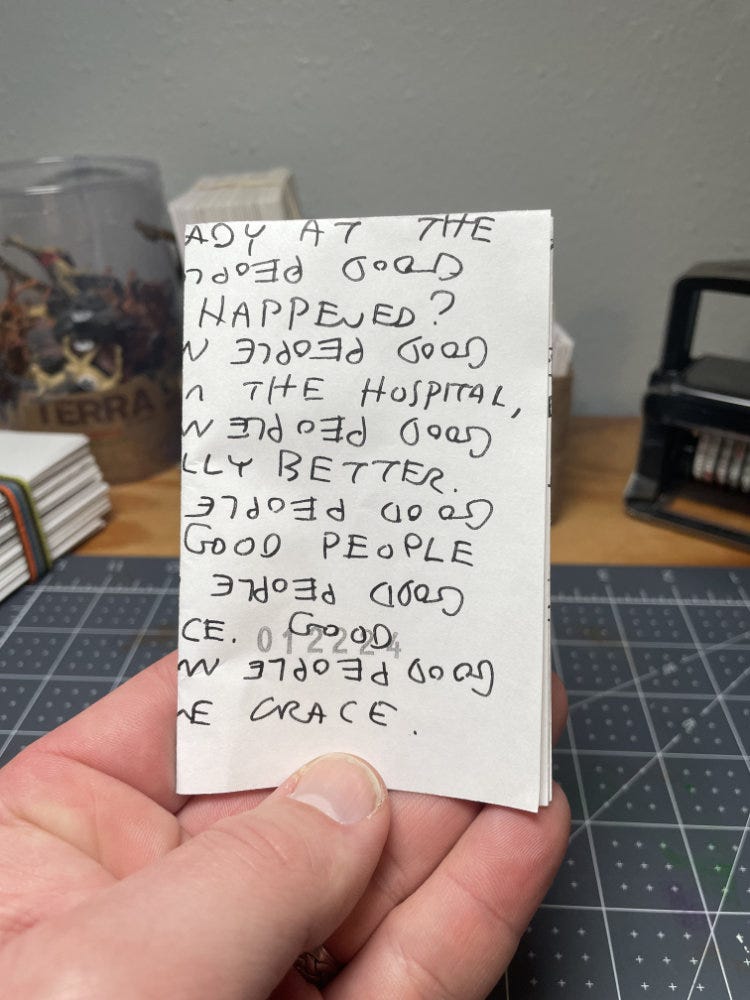 ADY AT THE
GOOD PEOPL
HAPPENED?
GOOD PEOPLE
N THE HOSPITAL,
GOOD PEOPLE
LLY BETTER.
GOOD PEOPLE
GOOD PEOPLE
GOOD PEOPLE
CE. GOOD
012224
GOOD PEOPLE
E GRACE.
TERRA